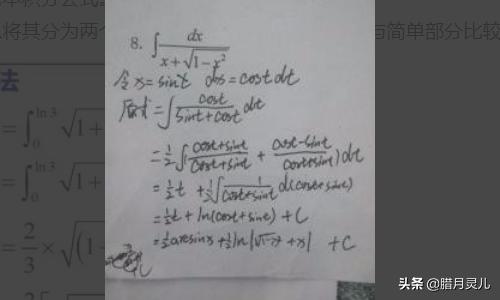 将其分为两个 与简单部分比较
去
= ∫₀^{ln 3} √1+
= ∫₀^{ln 3} √1+
= 2/3 × √(1
8. ∫ dx/(x+√(1-x²))
令x=sint dx=costdt
原式=∫ cost/(sint+cost) dt
=1/2∫(cost+sint)/(cost+sint) + (cost-sint)/(cost+sint) dt
=1/2 t + 1/2∫ 1/(cost+sint) d(cost+sint)
=1/2 t + ln(cost+sint) + C
=1/2 arcsinx+1/2 ln|√(1-x²)+x| + C
头条 @腊月灵儿